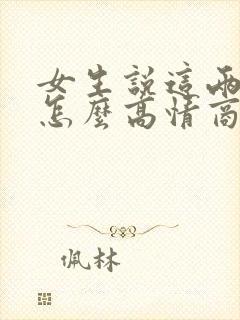 女生說這兩
怎麼高情商
佩林